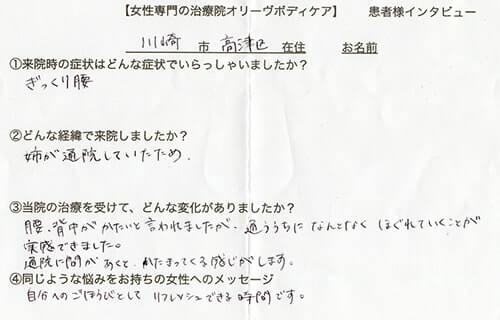 【女性専門の治療院オリーヴボディケア】 患者様インタビュー
川崎 市 高津区 在住 お名前
①来院時の症状はどんな症状でいらっしゃいましたか？
ぎっくり腰
②どんな経緯で来院しましたか？
姉が通院していたため.
③当院の治療を受けて、どんな変化がありましたか？
腰、背中がかたいと言われましたが、通ううちに なんとなく ほぐれていくことが
実感できました。
通院に間があくと、かたまってくる感じがします。
④同じような悩みをお持ちの女性へのメッセージ
自分へのごほうびとして リフレッシュできる時間です。